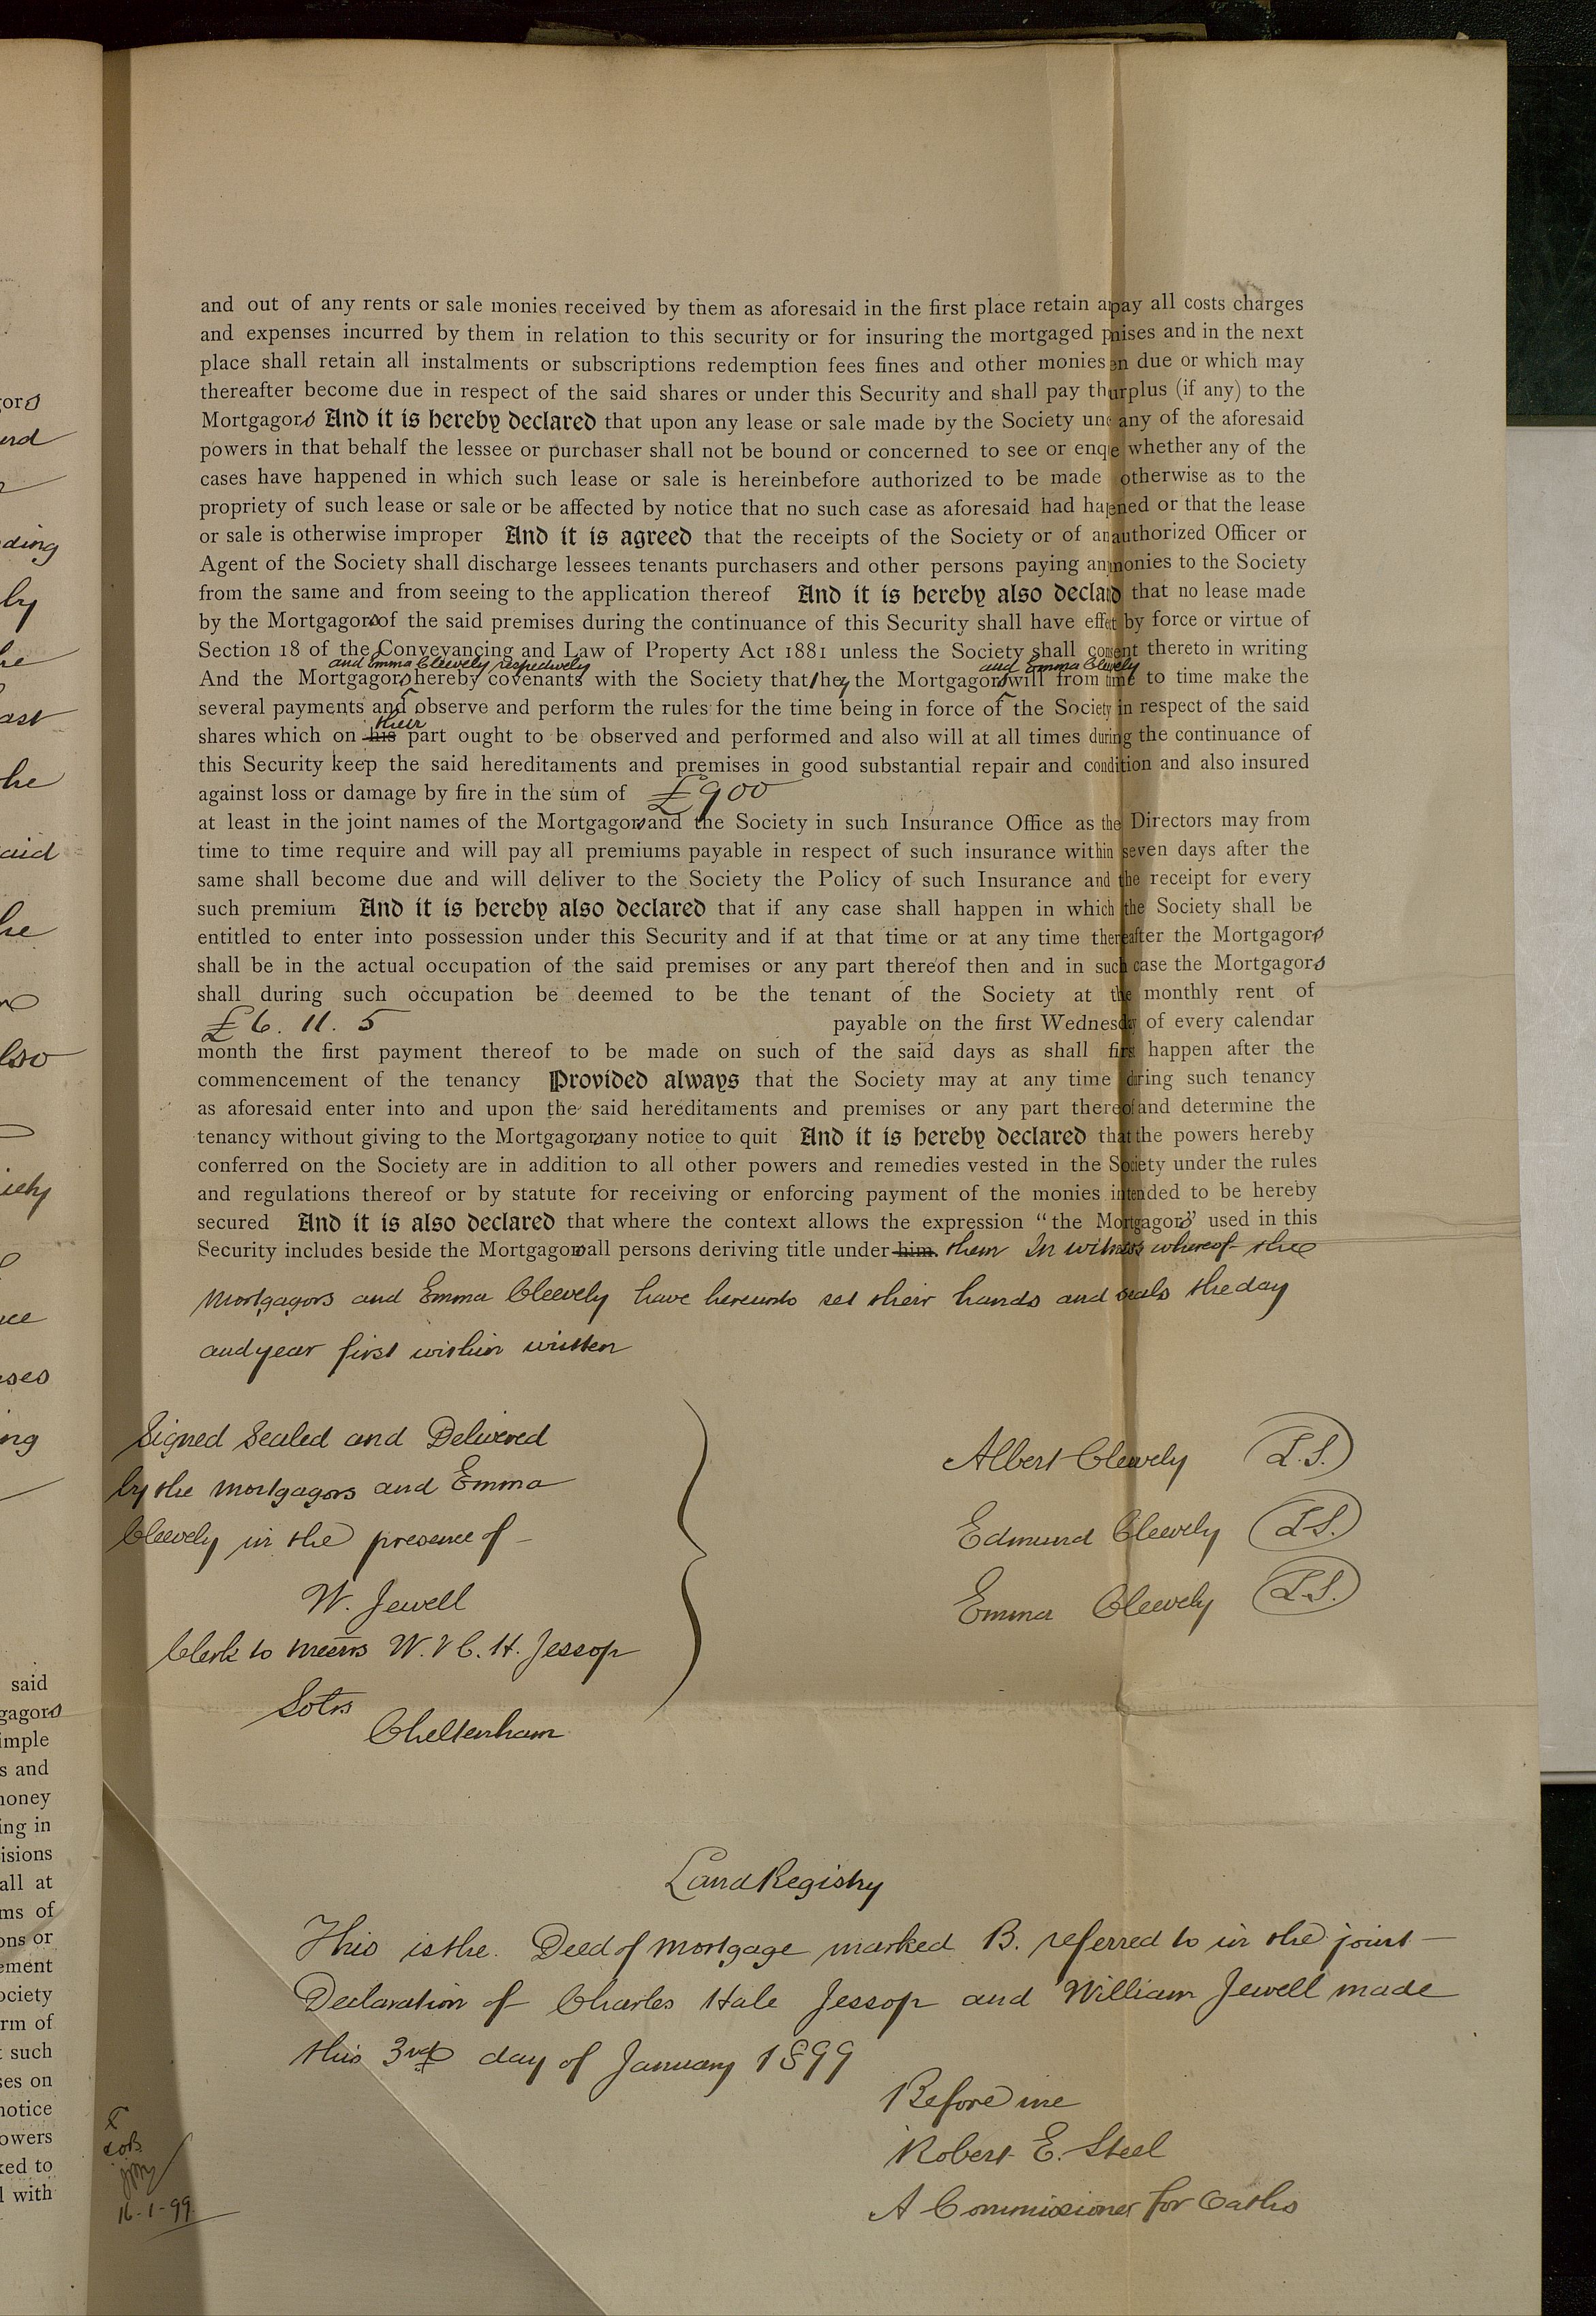 and out of any rents or sale monies received by them as aforesaid in the first place retain a pay all costs charges
and expenses incurred by them in relation to this security or for insuring the mortgaged p mises and in the next
place shall retain all instalments or subscriptions redemption fees fines and other monies en due or which may
thereafter become due in respect of the said shares or under this Security and shall pay th urplus (if any) to the
Mortgagors And it is hereby declared that upon any lease or sale made by the Society und any of the aforesaid
powers in that behalf the lessee or purchaser shall not be bound or concerned to see or enq e whether any of the
cases have happened in which such lease or sale is hereinbefore authorized to be made otherwise as to the
propriety of such lease or sale or be affected by notice that no such case as aforesaid had hap ened or that the lease
or sale is otherwise improper And it is agreed that the receipts of the Society or of an authorized Officer or
Agent of the Society shall discharge lessees tenants purchasers and other persons paying any monies to the Society
from the same and from seeing to the application thereof And it is hereby also declared that no lease made
by the Mortgagors of the said premises during the continuance of this Security shall have effect by force or virtue of
Section 18 of the Conveyancing and Law of Property Act 1881 unless the Society shall consent thereto in writing
and Emma Cleevely respectively and Emma Cleevely
And the Mortgagors hereby covenants with the Society that they the Mortgagors will from time to time make the
several payments and observe and perform the rules for the time being in force of the Society in respect of the said
their
shares which on his part ought to be observed and performed and also will at all times during the continuance of
this Security keep the said hereditaments and premises in good substantial repair and condition and also insured
against loss or damage by fire in the sum of £900
at least in the joint names of the Mortgagors and the Society in such Insurance Office as the Directors may from
time to time require and will pay all premiums payable in respect of such insurance within seven days after the
same shall become due and will deliver to the Society the Policy of such Insurance and the receipt for every
such premium And it is hereby also declared that if any case shall happen in which the Society shall be
entitled to enter into possession under this Security and if at that time or at any time thereafter the Mortgagors
shall be in the actual occupation of the said premises or any part thereof then and in such case the Mortgagors
shall during such occupation be deemed to be the tenant of the Society at the monthly rent of
£6. 11. 5 payable on the first Wednesday of every calendar
month the first payment thereof to be made on such of the said days as shall first happen after the
commencement of the tenancy Provided always that the Society may at any time during such tenancy
as aforesaid enter into and upon the said hereditaments and premises or any part thereof and determine the
tenancy without giving to the Mortgagors any notice to quit And it is hereby declared that the powers hereby
conferred on the Society are in addition to all other powers and remedies vested in the Society under the rules
and regulations thereof or by statute for receiving or enforcing payment of the monies intended to be hereby
secured And it is also declared that where the context allows the expression "the Mortgagors" used in this
Security includes beside the Mortgagors all persons deriving title under him. them In witness whereof the
Mortgagors and Emma Cleevely have hereunto set their hands and seals the day
and year first within written
Signed Sealed and Delivered
by the Mortgagors and Emma
Cleevely in the presence of
W. Jewell
Clerk to Messrs W. & C. H. Jessop
Solrs
Cheltenham
Albert Cleevely L.S.
Edmund Cleevely L.S.
Emma Cleevely L.S.
Land Registry
This is the Deed of Mortgage marked B. referred to in the joint
Declaration of Charles Hale Jessop and William Jewell made
this 3rd day of January 1899
Before me
Robert E. Steel
A Commissioner for Oaths
16-1-99
gors
ding
by
he
ast
he
aid
he
lso
iety
ses
ing
said
gagors
imple
s and
money
ing in
isions
all at
ms of
ons or
ement
ociety
rm of
t such
ses on
notice
owers
ked to
l with